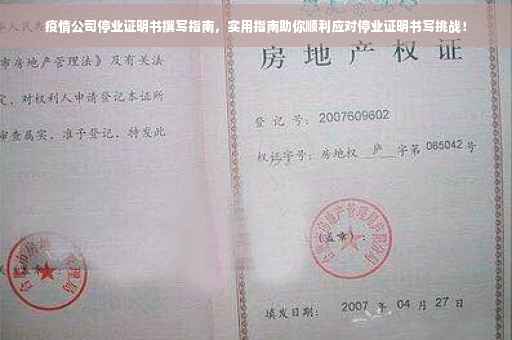 疫情公司停业证明书撰写指南，实用指南助你顺利应对停业证明书写挑战！
华人民共
市房地产管理法》及有关法
定，对权利人申请登记本证所
审查属实，准予登记，特发此
房地产权证
登记号：2007609602
权证字号：房地权 庐 字第 085042 号
房地产管理局
(盖章)：
填发日期：2007 年 04 月 27 日